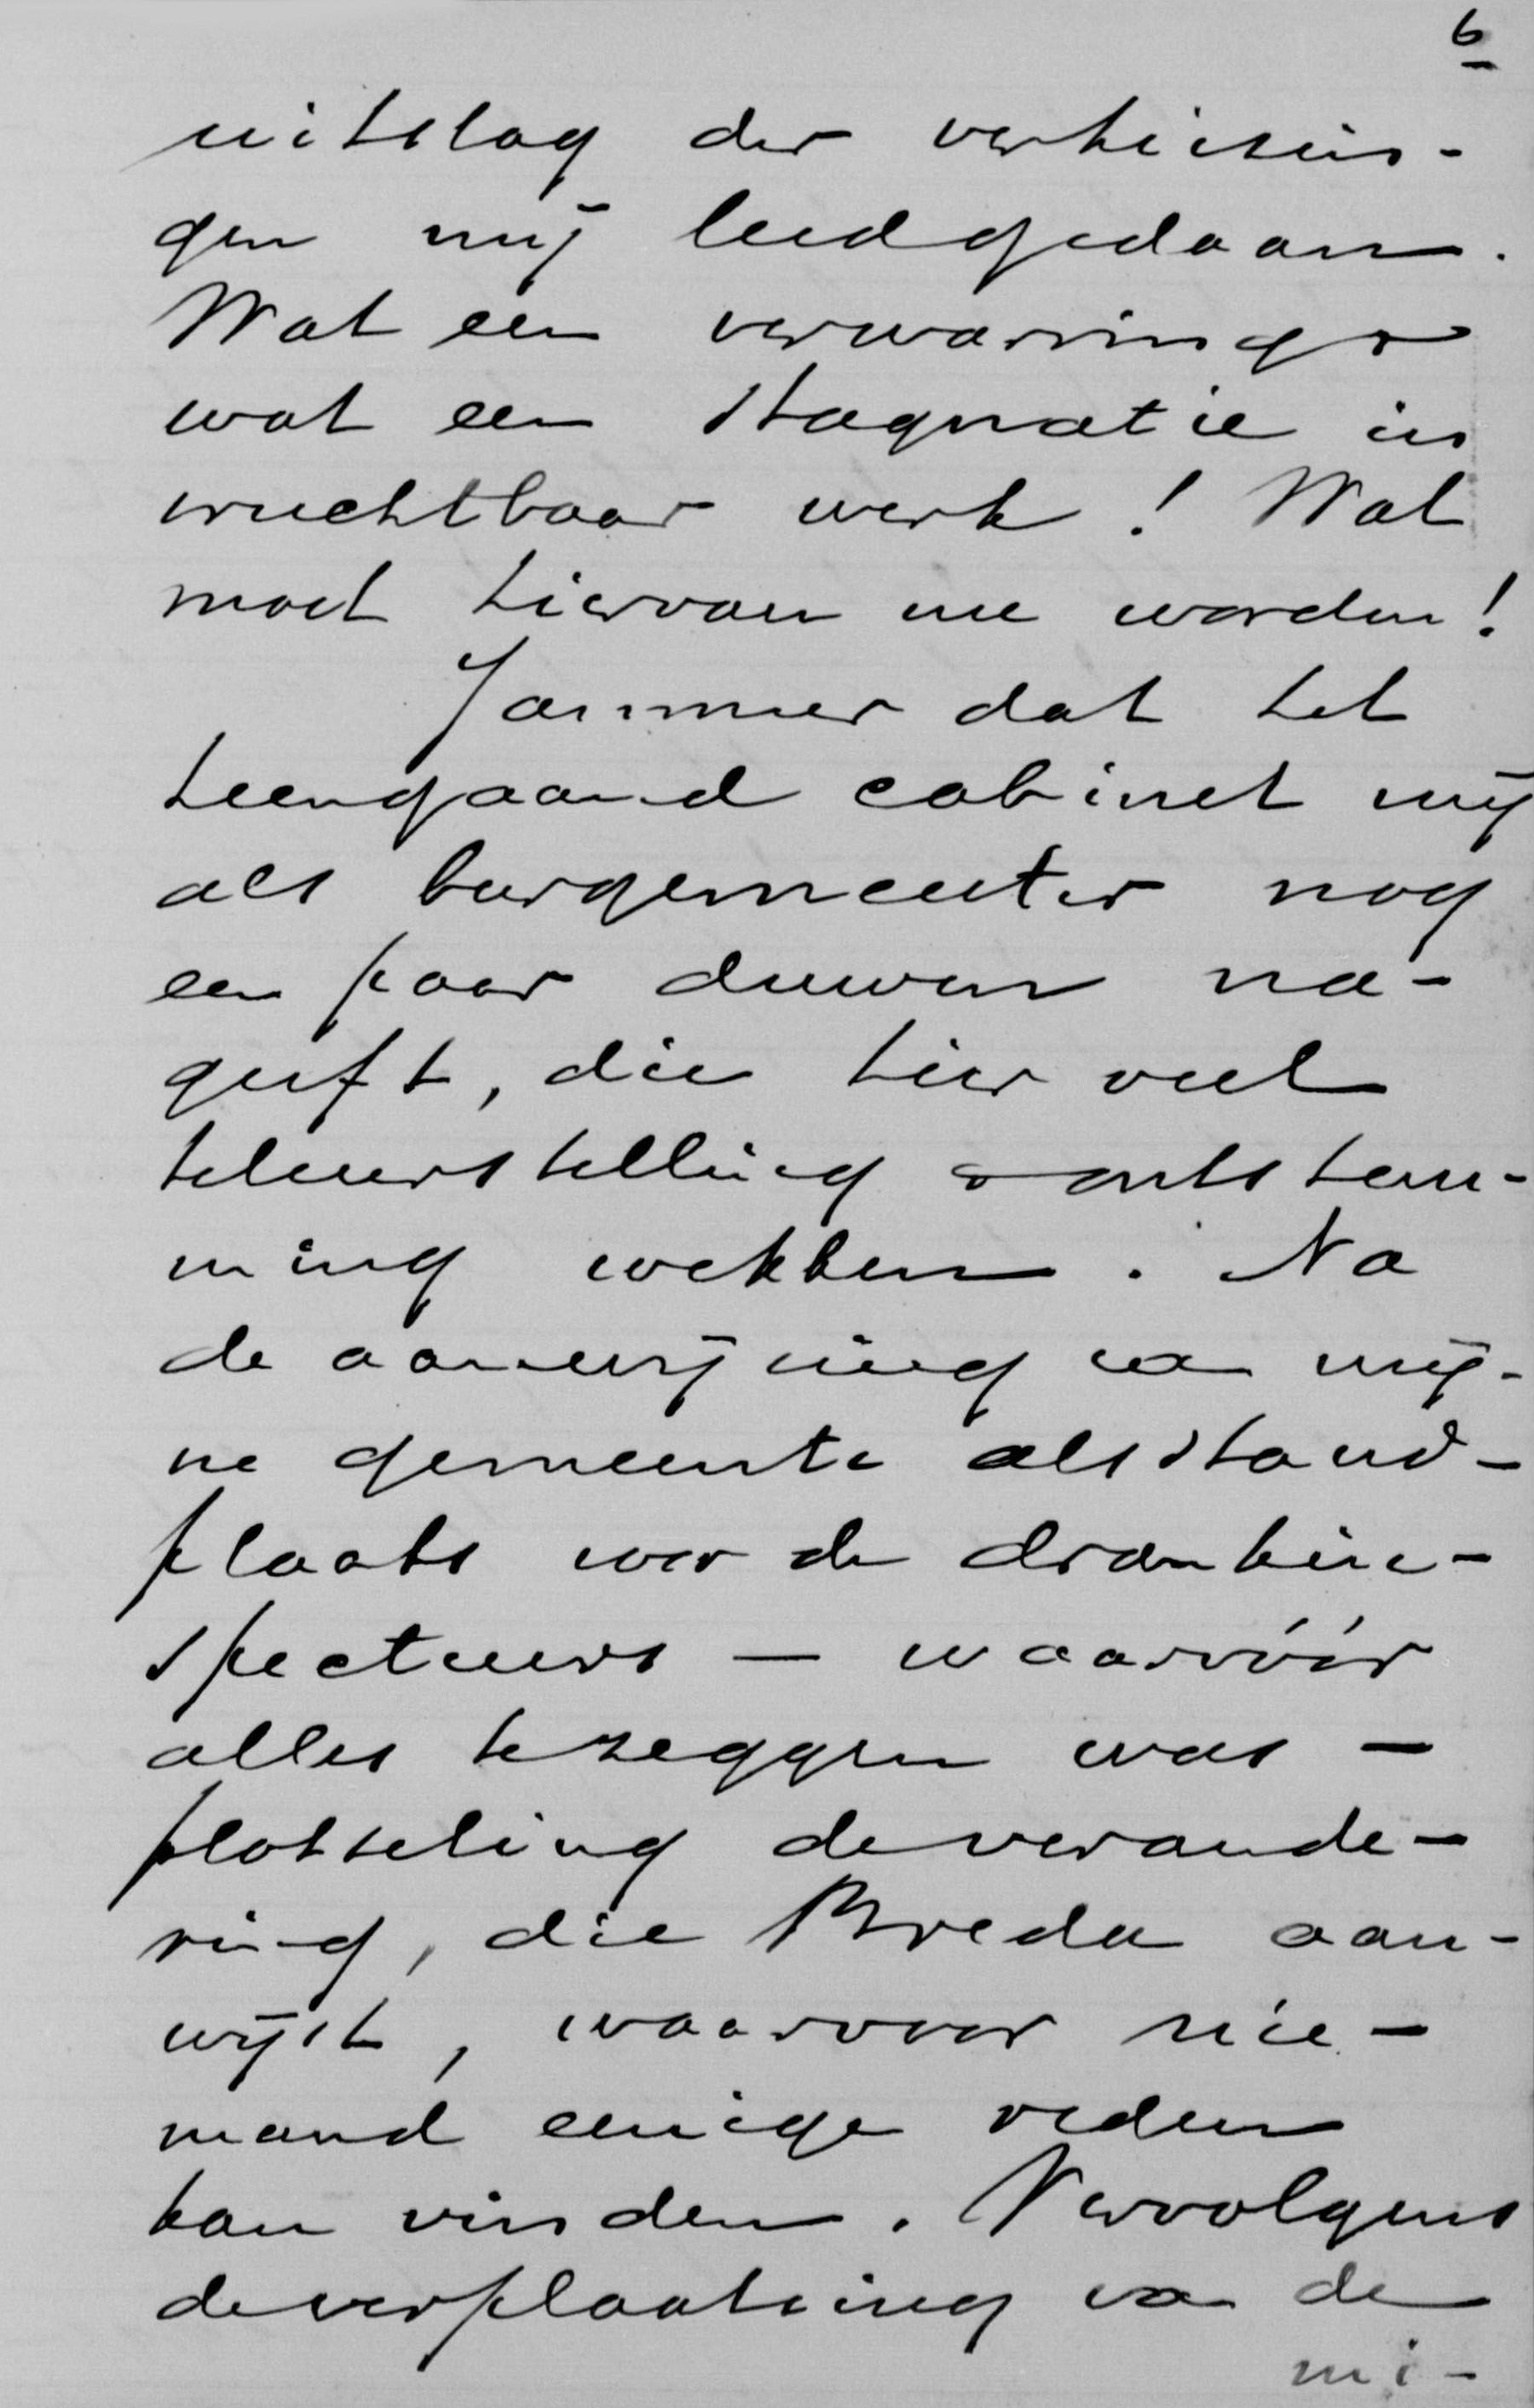 6
uitslag der verkiezin-
gen mij leedgedaan.
Wat een verwarring &
wat een stagnatie in
vruchtbaar werk! Wat
moet hiervan nu worden!
Jammer dat het
heengaand cabinet mij
als burgemeester nog
een paar duwen na-
geeft, die hier veel
teleurstelling & ontstem-
ming wekken. Na
de aanwijzing van mij-
ne gemeente als stand-
plaats voor de drankin-
specteurs — waarvóór
alles te zeggen was —
plotseling de verande-
ring, die Breda aan-
wijst, waarvoor nie-
mand eenige reden
kan vinden. Vervolgens
de verplaatsing van de
mi-